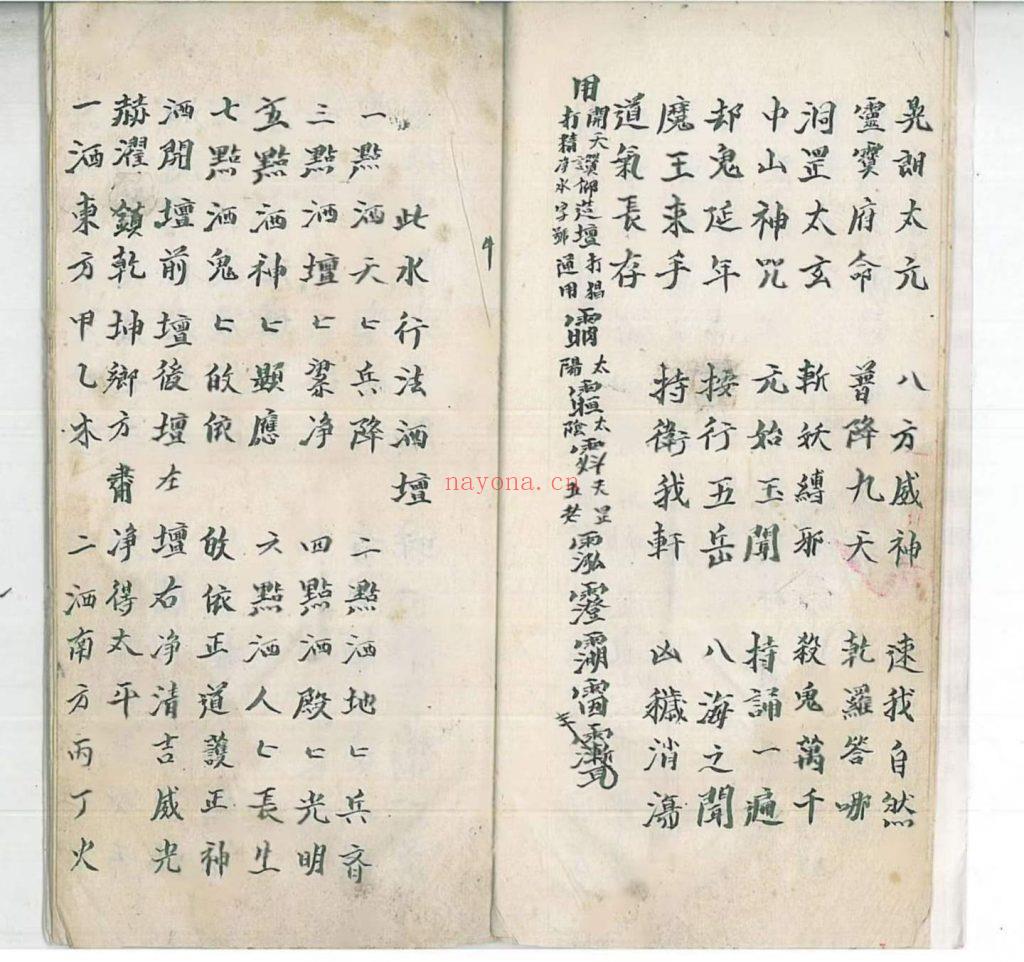 晃朗太亢 八方威神 速我自然
靈寶府命 普降九天 乾羅答哪
洞罡太玄 斬妖縛邪 殺鬼萬千
中山神咒 元始玉聞 持誦一遍
却鬼延年 按行五岳 八海之聞
魔王束手 持衛我軒 凶穢消蕩
道氣長存
用
開天讚
打精 通用
太陽 太陰 天罡 五
此水行法洒壇
一點洒天〻兵降 二點洒地〻兵齊
三點洒壇〻潔净 四點洒殿〻光明
五點洒神〻顯應 六點洒人〻長生
七點洒鬼〻皈依 皈依正道護正神
洒開壇前壇後壇左 壇右净清吉威光
赫濯鎮乾坤鄉方肅 净得太平
一洒東方甲乙木 二洒南方丙丁火
nayona.cn